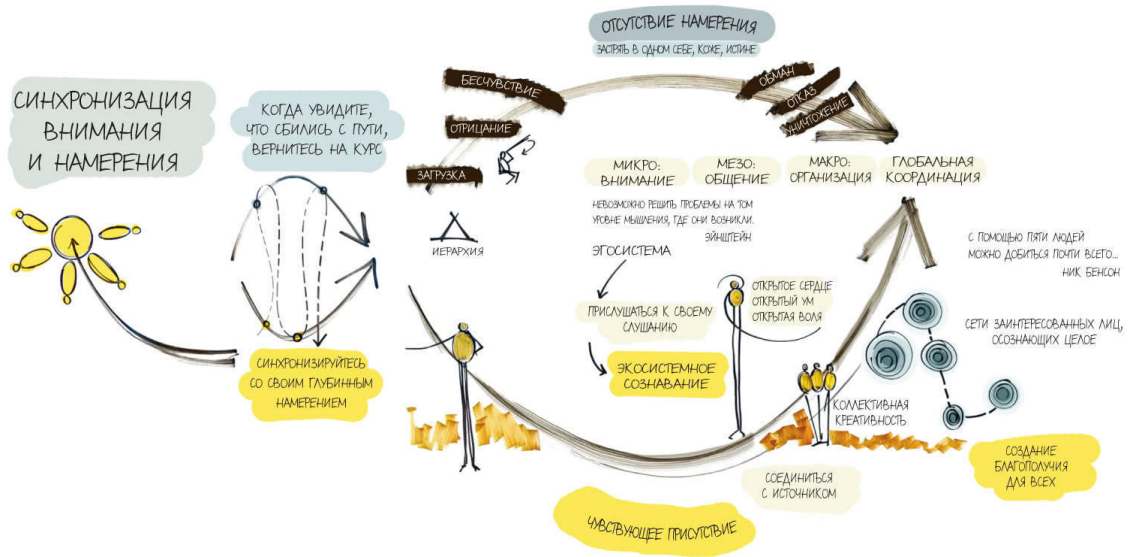 СИНХРОНИЗАЦИЯ
ВНИМАНИЯ
И НАМЕРЕНИЯ
КОГДА УВИДИТЕ,
ЧТО СБИЛИСЬ С ПУТИ,
ВЕРНИТЕСЬ НА КУРС
СИНХРОНИЗИРУЙТЕСЬ
СО СВОИМ ГЛУБИННЫМ
НАМЕРЕНИЕМ
ОТСУТСТВИЕ НАМЕРЕНИЯ
ЗАСТРЯТЬ В ОДНОМ СЕБЕ, КОЖЕ, ИСТИНЕ
БЕСЧУВСТВИЕ
ОТРИЦАНИЕ
ЗАГРУЗКА
ОБМАН
ОТКАЗ
УНИЧТОЖЕНИЕ
ИЕРАРХИЯ
МИКРО:
ВНИМАНИЕ
МЕЗО:
ОБЩЕНИЕ
МАКРО:
ОРГАНИЗАЦИЯ
ГЛОБАЛЬНАЯ
КООРДИНАЦИЯ
НЕВОЗМОЖНО РЕШИТЬ ПРОБЛЕМЫ НА ТОМ
УРОВНЕ МЫШЛЕНИЯ, ГДЕ ОНИ ВОЗНИКЛИ.
ЭЙНШТЕЙН
ЭГОСИСТЕМА
ПРИСЛУШАТЬСЯ К СВОЕМУ
СЛУШАНИЮ
ЭКОСИСТЕМНОЕ
СОЗНАВАНИЕ
ОТКРЫТОЕ СЕРДЦЕ
ОТКРЫТЫЙ УМ
ОТКРЫТАЯ ВОЛЯ
КОЛЛЕКТИВНАЯ
КРЕАТИВНОСТЬ
С ПОМОЩЬЮ ПЯТИ ЛЮДЕЙ
МОЖНО ДОБИТЬСЯ ПОЧТИ ВСЕГО...
НИК БЕНСОН
СЕТИ ЗАИНТЕРЕСОВАННЫХ ЛИЦ,
ОСОЗНАЮЩИХ ЦЕЛОЕ
СОЗДАНИЕ
БЛАГОПОЛУЧИЯ
ДЛЯ ВСЕХ
СОЕДИНИТЬСЯ
С ИСТОЧНИКОМ
ЧУВСТВУЮЩЕЕ ПРИСУТСТВИЕ